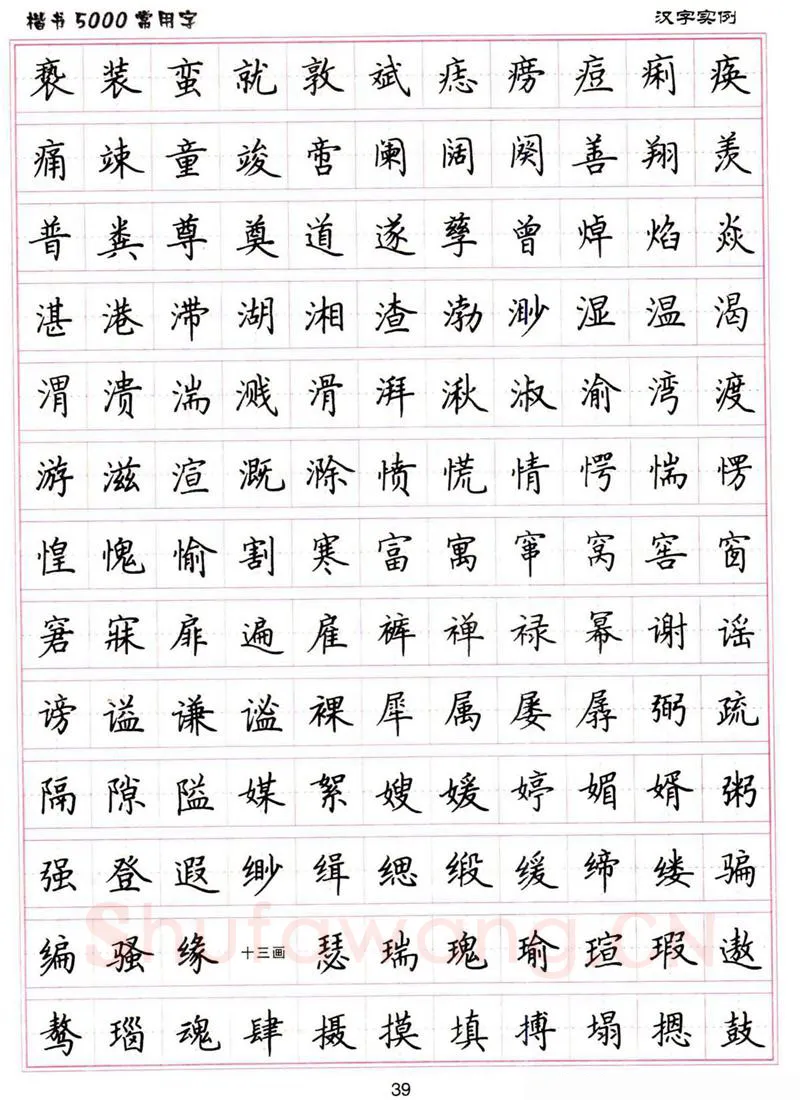 楷书5000常用字 汉字实例
亵 装 蛮 就 敦 斌 痣 痨 痘 痢 痪
痛 竦 童 竣 啻 阑 阔 阕 善 翔 羡
普 粪 尊 奠 道 遂 孳 曾 焯 焰 焱
湛 港 滞 湖 湘 渣 渤 渺 湿 温 渴
渭 溃 湍 溅 滑 湃 湫 淑 渝 湾 渡
游 滋 渲 溉 滁 愤 慌 情 愕 惴 愣
惶 愧 愉 割 寒 富 寓 窜 窝 窖 窗
窘 寐 扉 遍 雇 裤 禅 禄 幂 谢 谣
谤 谥 谦 谧 裸 犀 属 屡 孱 弼 疏
隔 隙 隘 媒 絮 嫂 媛 婷 媚 婿 粥
强 登 遐 缈 缉 缌 缎 缓 缔 缕 骗
编 骚 缘 十三画 瑟 瑞 瑰 瑜 瑄 瑕 遨
骜 瑙 魂 肆 摄 摸 填 搏 塌 摁 鼓
Shufawang.CN
39